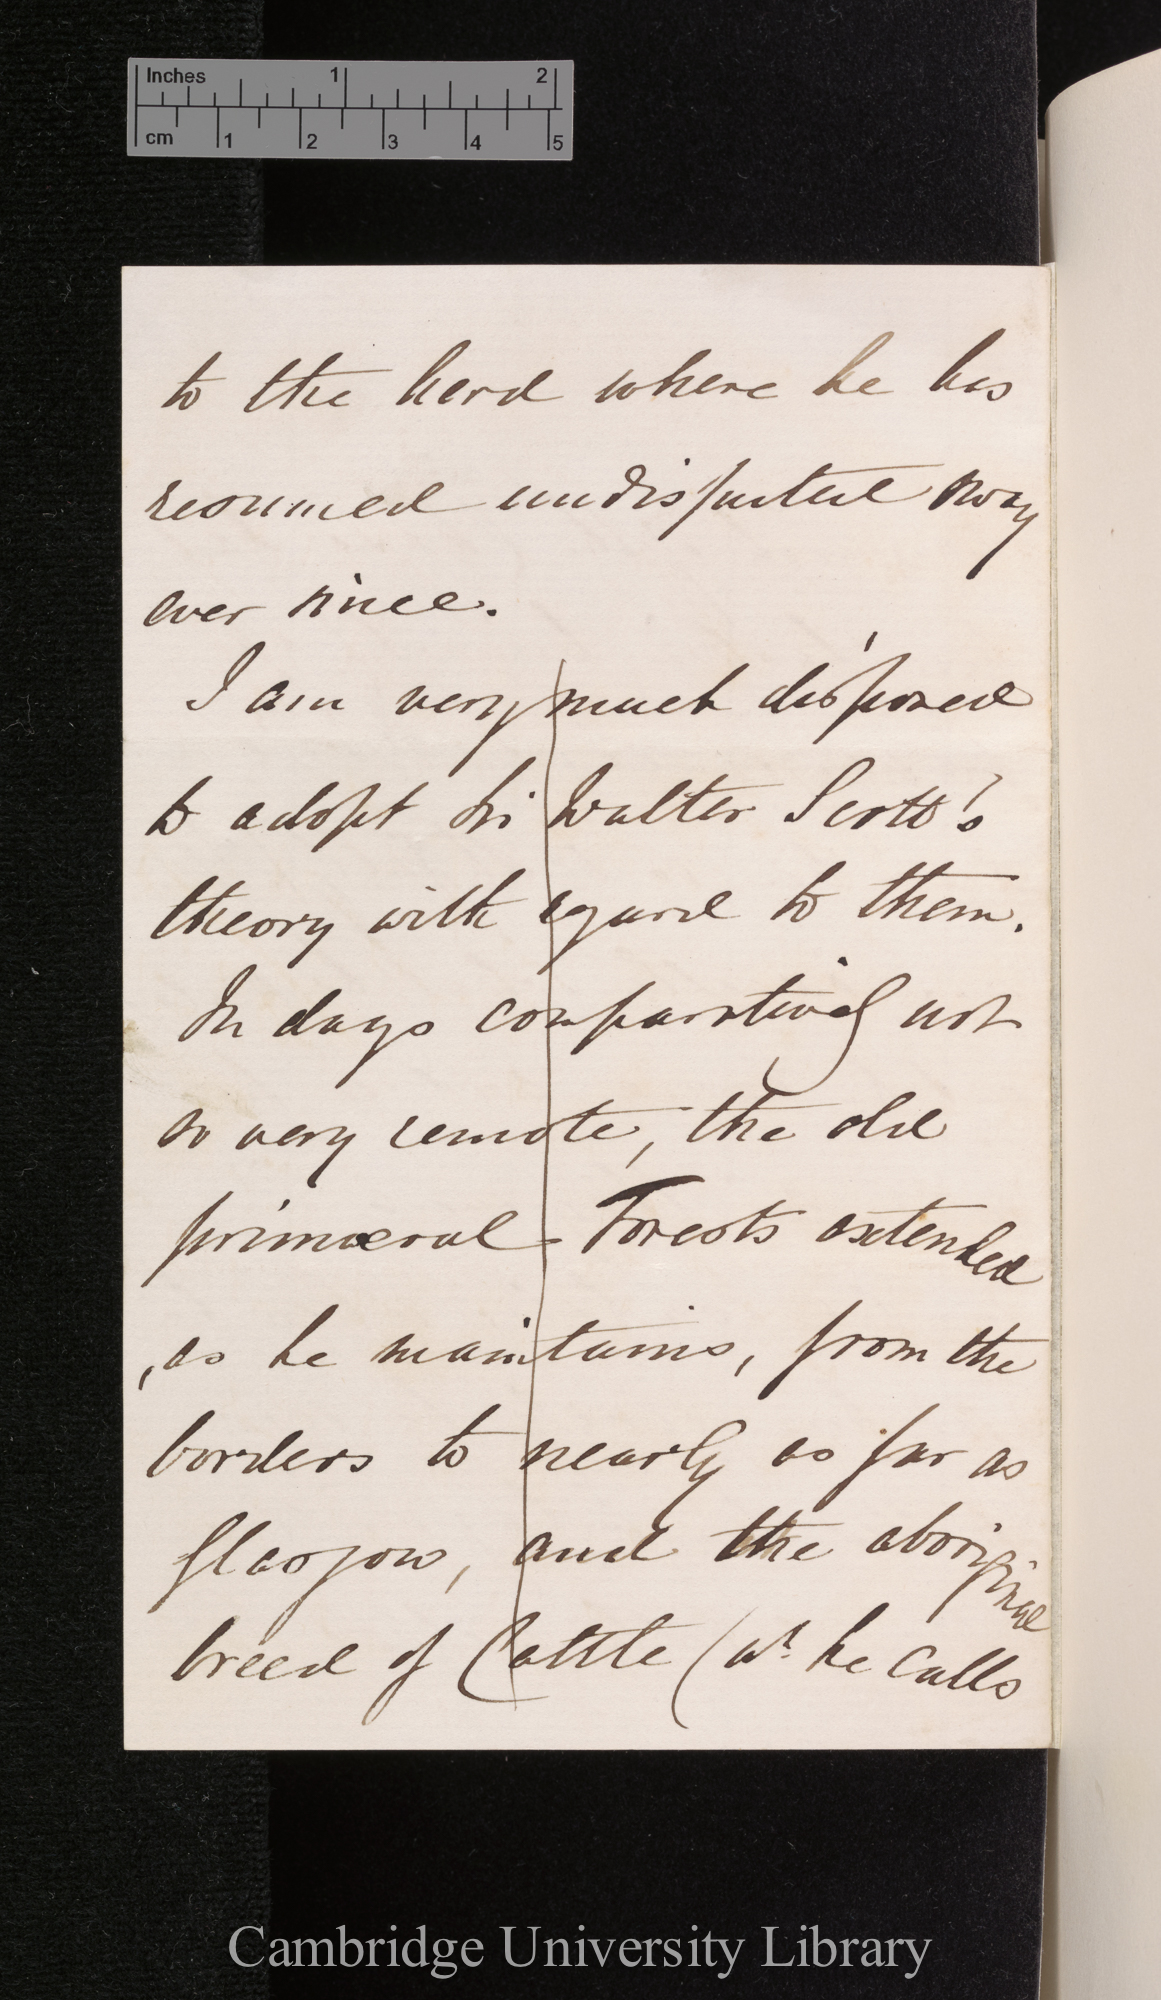 Inches 1 2
cm 1 2 3 4 5
to the herd where he has
resumed undisputed sway
ever since.
I am very much disposed
to adopt Sir Walter Scott's
theory with regard to them.
In days comparatively not
so very remote, the old
primæval Forests extended
, as he maintains, from the
borders to nearly as far as
Glasgow, and the aboriginal
breed of Cattle (wh. he calls
Cambridge University Library